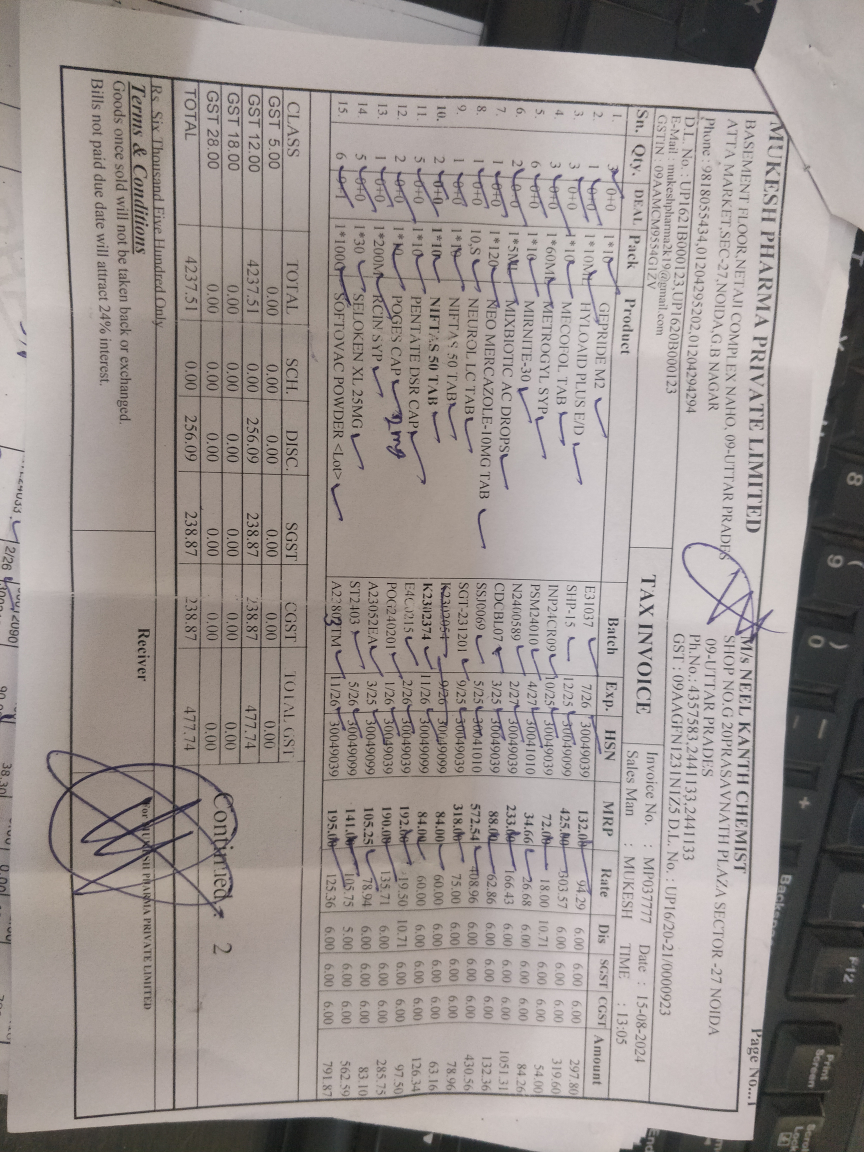 Page No...1
MUKESH PHARMA PRIVATE LIMITED
BASEMENT FLOOR,NETAJI COMPLEX NAHO, 09-UTTAR PRADES
ATTA MARKET,SEC-27,NOIDA,G.B NAGAR
Phone : 9818055434,01204295202,01204294294
D.L. No. : UP1621B000123,UP1620B000123
E-Mail : mukeshpharma2k19@gmail.com
GSTIN : 09AAMCM9554G1ZV
TAX INVOICE
M/s NEEL KANTH CHEMIST
SHOP NO.G 20PRASAVNATH PLAZA SECTOR -27 NOIDA
09-UTTAR PRADES
Ph.No.: 4357583,2441133,2441133
GST : 09AAGFN1231N1Z5 D.L. No. : UP16/20-21/0000923
Invoice No. : MP037777 Date : 15-08-2024
Sales Man : MUKESH TIME : 13:05
Sn. Qty. DEAL Pack Product Batch Exp. HSN MRP Rate Dis SGST CGST Amount
1. 3 0+0 1*10 GEPRIDE M2 E31037 7/26 30049039 132.00 94.29 6.00 6.00 6.00 297.80
2. 1 0+0 1*10ML HYLOID PLUS E/D SHP-15 12/25 30049099 425.00 303.57 6.00 6.00 6.00 319.60
3. 3 0+0 1*10 MECOFOL TAB
4. 3 0+0 1*60ML METROGYL SYP INP24CR09 10/25 30049039 72.00 18.00 10.71 6.00 6.00 54.00
5. 6 0+0 1*10 MIRNITE-30 PSM24010 4/27 30041010 34.66 26.68 6.00 6.00 6.00 84.26
6. 2 0+0 1*5ML MIXBIOTIC AC DROPS N2460589 2/27 30049039 233.00 166.43 6.00 6.00 6.00 1051.31
7. 1 0+0 1*120 NEO MERCAZOLE-10MG TAB CDCBL07 3/25 30049039 88.00 62.86 6.00 6.00 6.00 132.36
8. 1 0+0 10,S NEUROL LC TAB SSJ0069 5/25 30041010 572.54 408.96 6.00 6.00 6.00 430.56
9. 1 0+0 1*10 NIFTAS 50 TAB SGT-231201 9/25 30049039 318.00 75.00 6.00 6.00 6.00 78.96
10. 2 0+0 1*10 NIFTAS 50 TAB K2302054 9/26 30049099 84.00 60.00 6.00 6.00 6.00 63.16
11. 5 0+0 1*10 PENTATE DSR CAP K2302374 11/26 30049099 84.00 60.00 6.00 6.00 6.00 126.34
12. 2 0+0 1*10 POGES CAP 2mg 2/26 30049039 192.00 19.50 10.71 6.00 6.00 97.50
13. 1 0+0 1*200M RCIN SYP POG240201 1/26 30049039 190.00 135.71 6.00 6.00 6.00 285.75
14. 5 0+0 1*30 SELOKEN XL 25MG A23052EA 3/25 30049039 105.25 78.94 6.00 6.00 6.00 83.10
15. 6 1*100G SOFTOVAC POWDER <Lot> ST2403 5/26 30049099 141.00 105.75 5.00 6.00 6.00 562.59
11/26 30049039 195.00 125.36 6.00 6.00 6.00 791.87
CLASS TOTAL SCH. DISC. SGST CGST TOTAL GST
GST 5.00 0.00 0.00 0.00 0.00 0.00 0.00
GST 12.00 4237.51 0.00 256.09 238.87 238.87 477.74
GST 18.00 0.00 0.00 0.00 0.00 0.00 0.00
GST 28.00 0.00 0.00 0.00 0.00 0.00 0.00
TOTAL 4237.51 0.00 256.09 238.87 238.87 477.74
Continued.. 2
Rs. Six Thousand Five Hundred Only
Terms & Conditions
Goods once sold will not be taken back or exchanged.
Bills not paid due date will attract 24% interest.
Reciver
For MUKESH PHARMA PRIVATE LIMITED